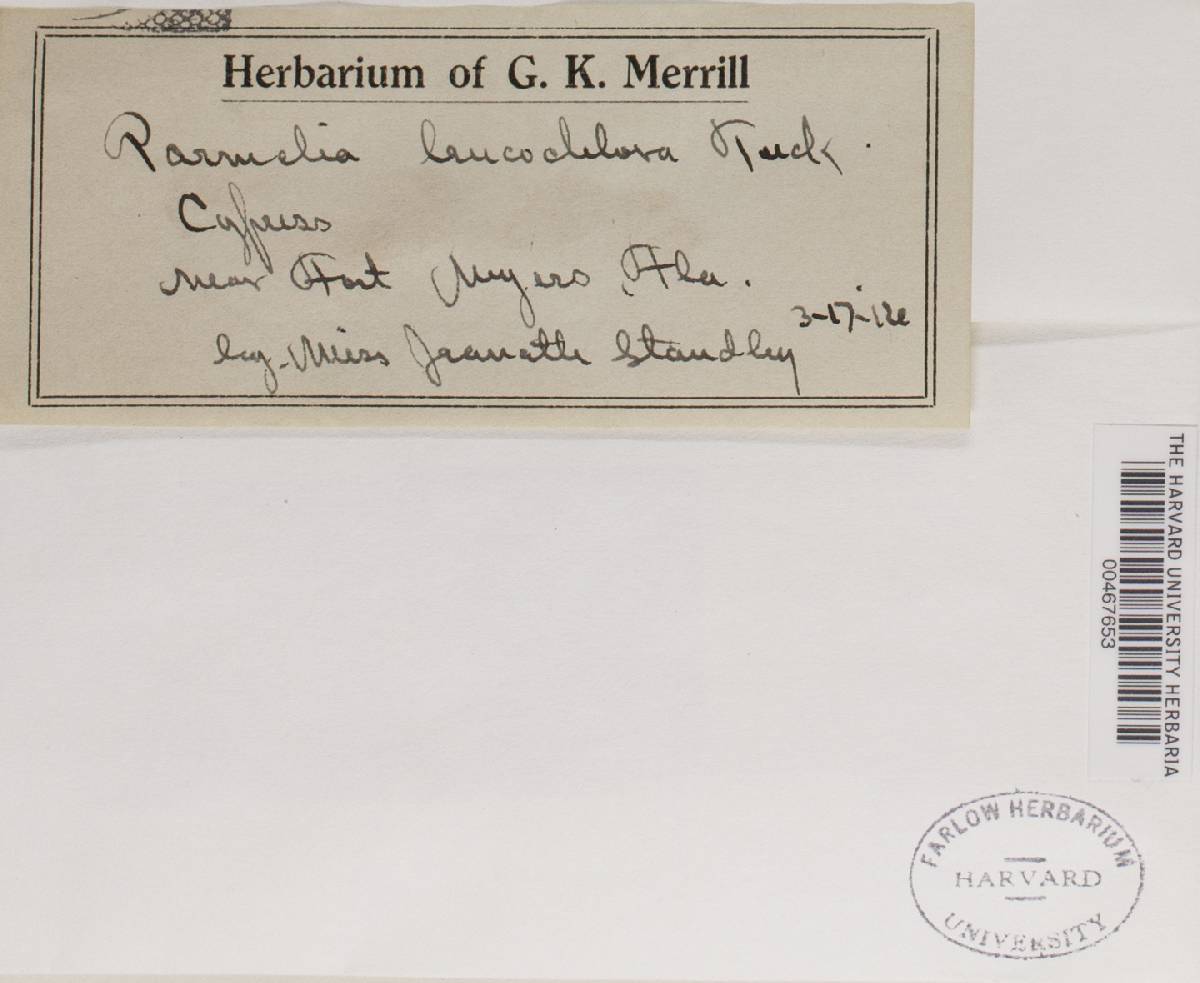 Herbarium of G. K. Merrill
Parmelia leucochlora Tuck.
Cypress
near Fort Myers Fla.
3-17-16
leg. Miss Jeanette Standley
THE HARVARD UNIVERSITY HERBARIA
00467653
FARLOW HERBARIUM
HARVARD
UNIVERSITY